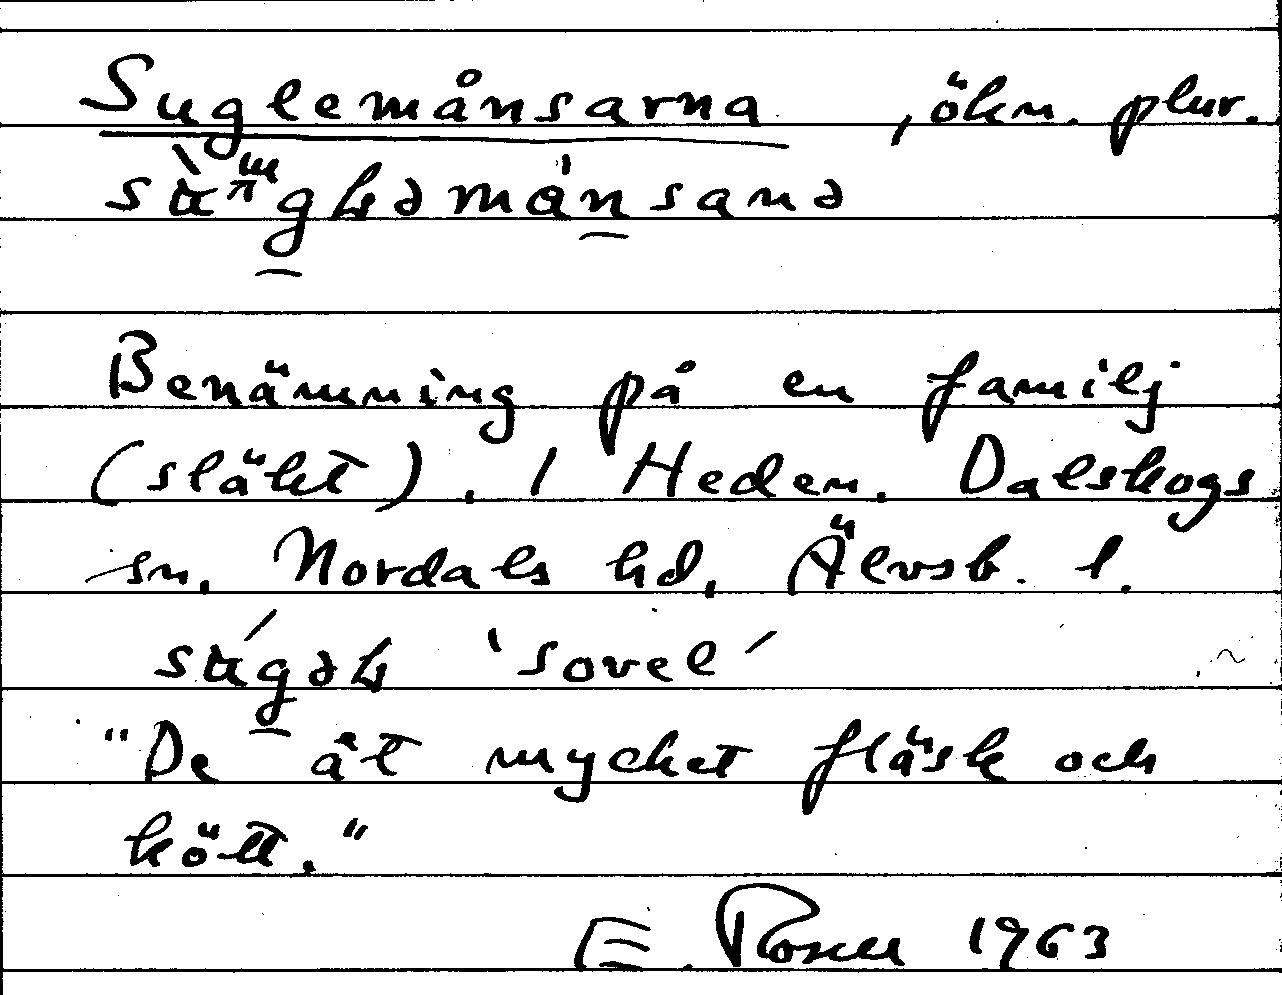 Suglemånsarna, ökn. plur.
sùgləmånsanə
Benämning på en familj
(släkt). I Heden. Dalskogs
sn. Nordals hd, Älvsb. l.
súgəl 'sovel'
"De åt mycket fläsk och
kött."
E. Rosell 1963